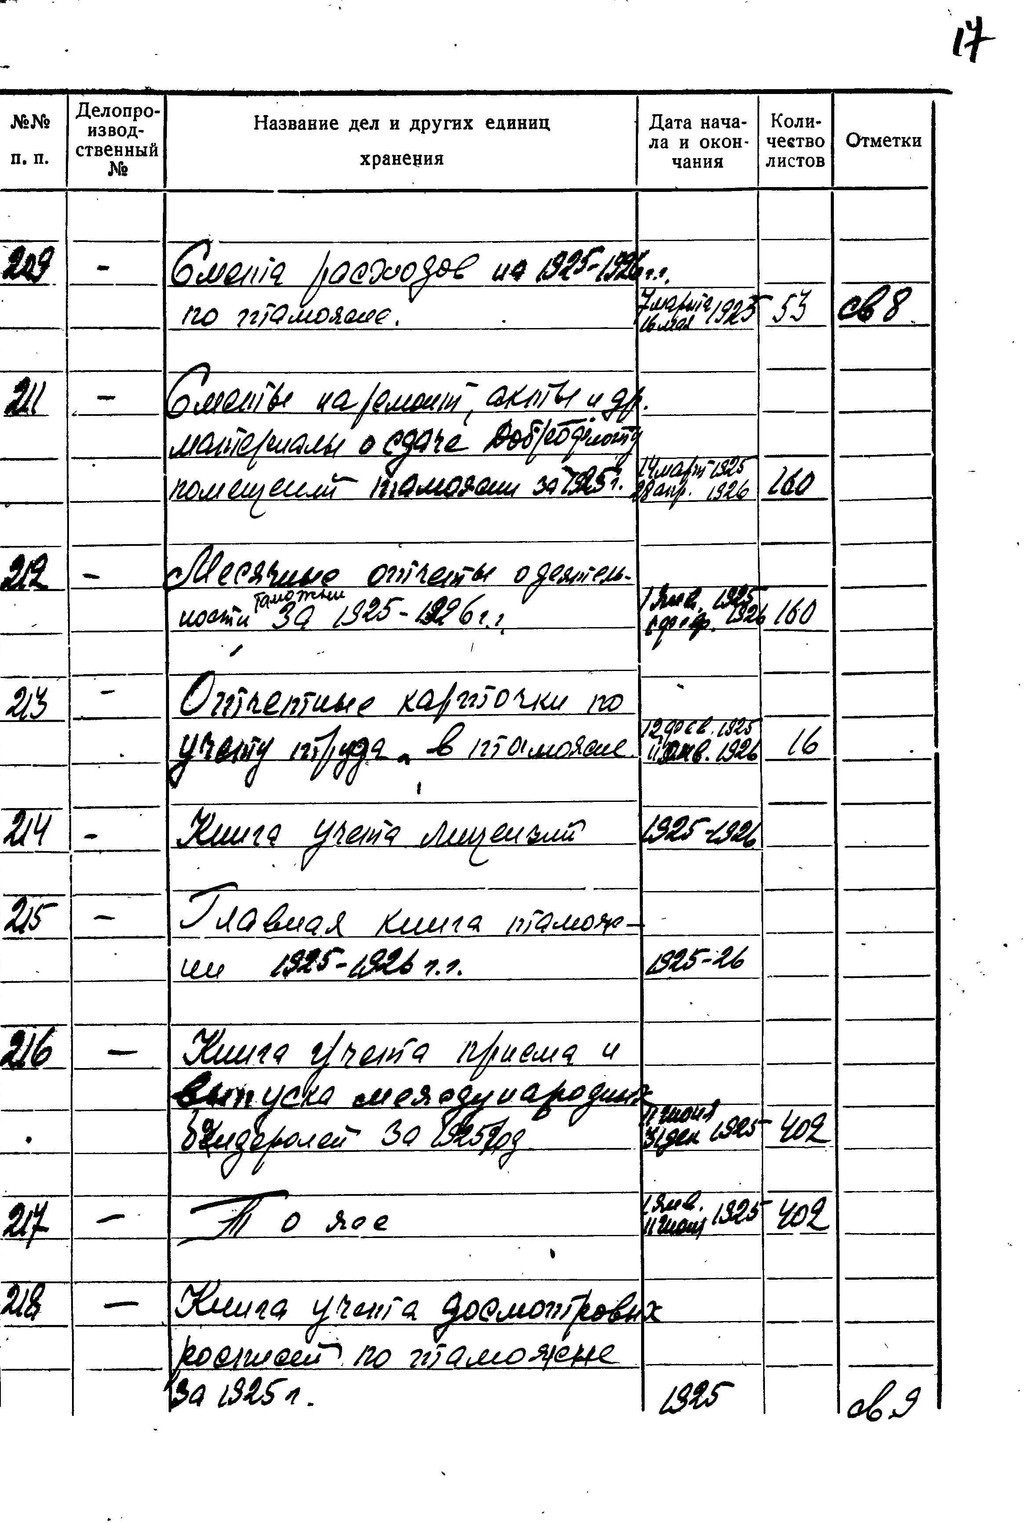 17
№№ п. п.
Делопро-
извод-
ственный
№
Название дел и других единиц
хранения
Дата нача-
ла и окон-
чания
Коли-
чество
листов
Отметки
209 - Смета расходов на 1925-1926 г.г.
по таможне. 7 марта 16 мая 1925 53 св 8
211 - Сметы на ремонт, акты и др.
материалы о сдаче Добробфлоту
помещений таможни за 1925 г. 14 март 1925 28 апр. 1926 160
212 - Месячные отчеты о деятель-
ности таможни за 1925-1926 г.г. 1 янв. 1925 февр. 1926 160
213 - Отчетные карточки по
учету труда в таможне 12 1925 янв. 1926 16
214 - Книга учета лицензий 1925-1926
215 - Главная книга тамож-
ни 1925-1926 г.г. 1925-26
216 - Книга учета приема и
выпуска международных
бандеролей за 1925 год 11 июня 31 дек 1925 402
217 - То же 1 янв. 11 июня 1925 402
218 - Книга учета досмотровых
росписей по таможне
за 1925 г. 1925 св.9